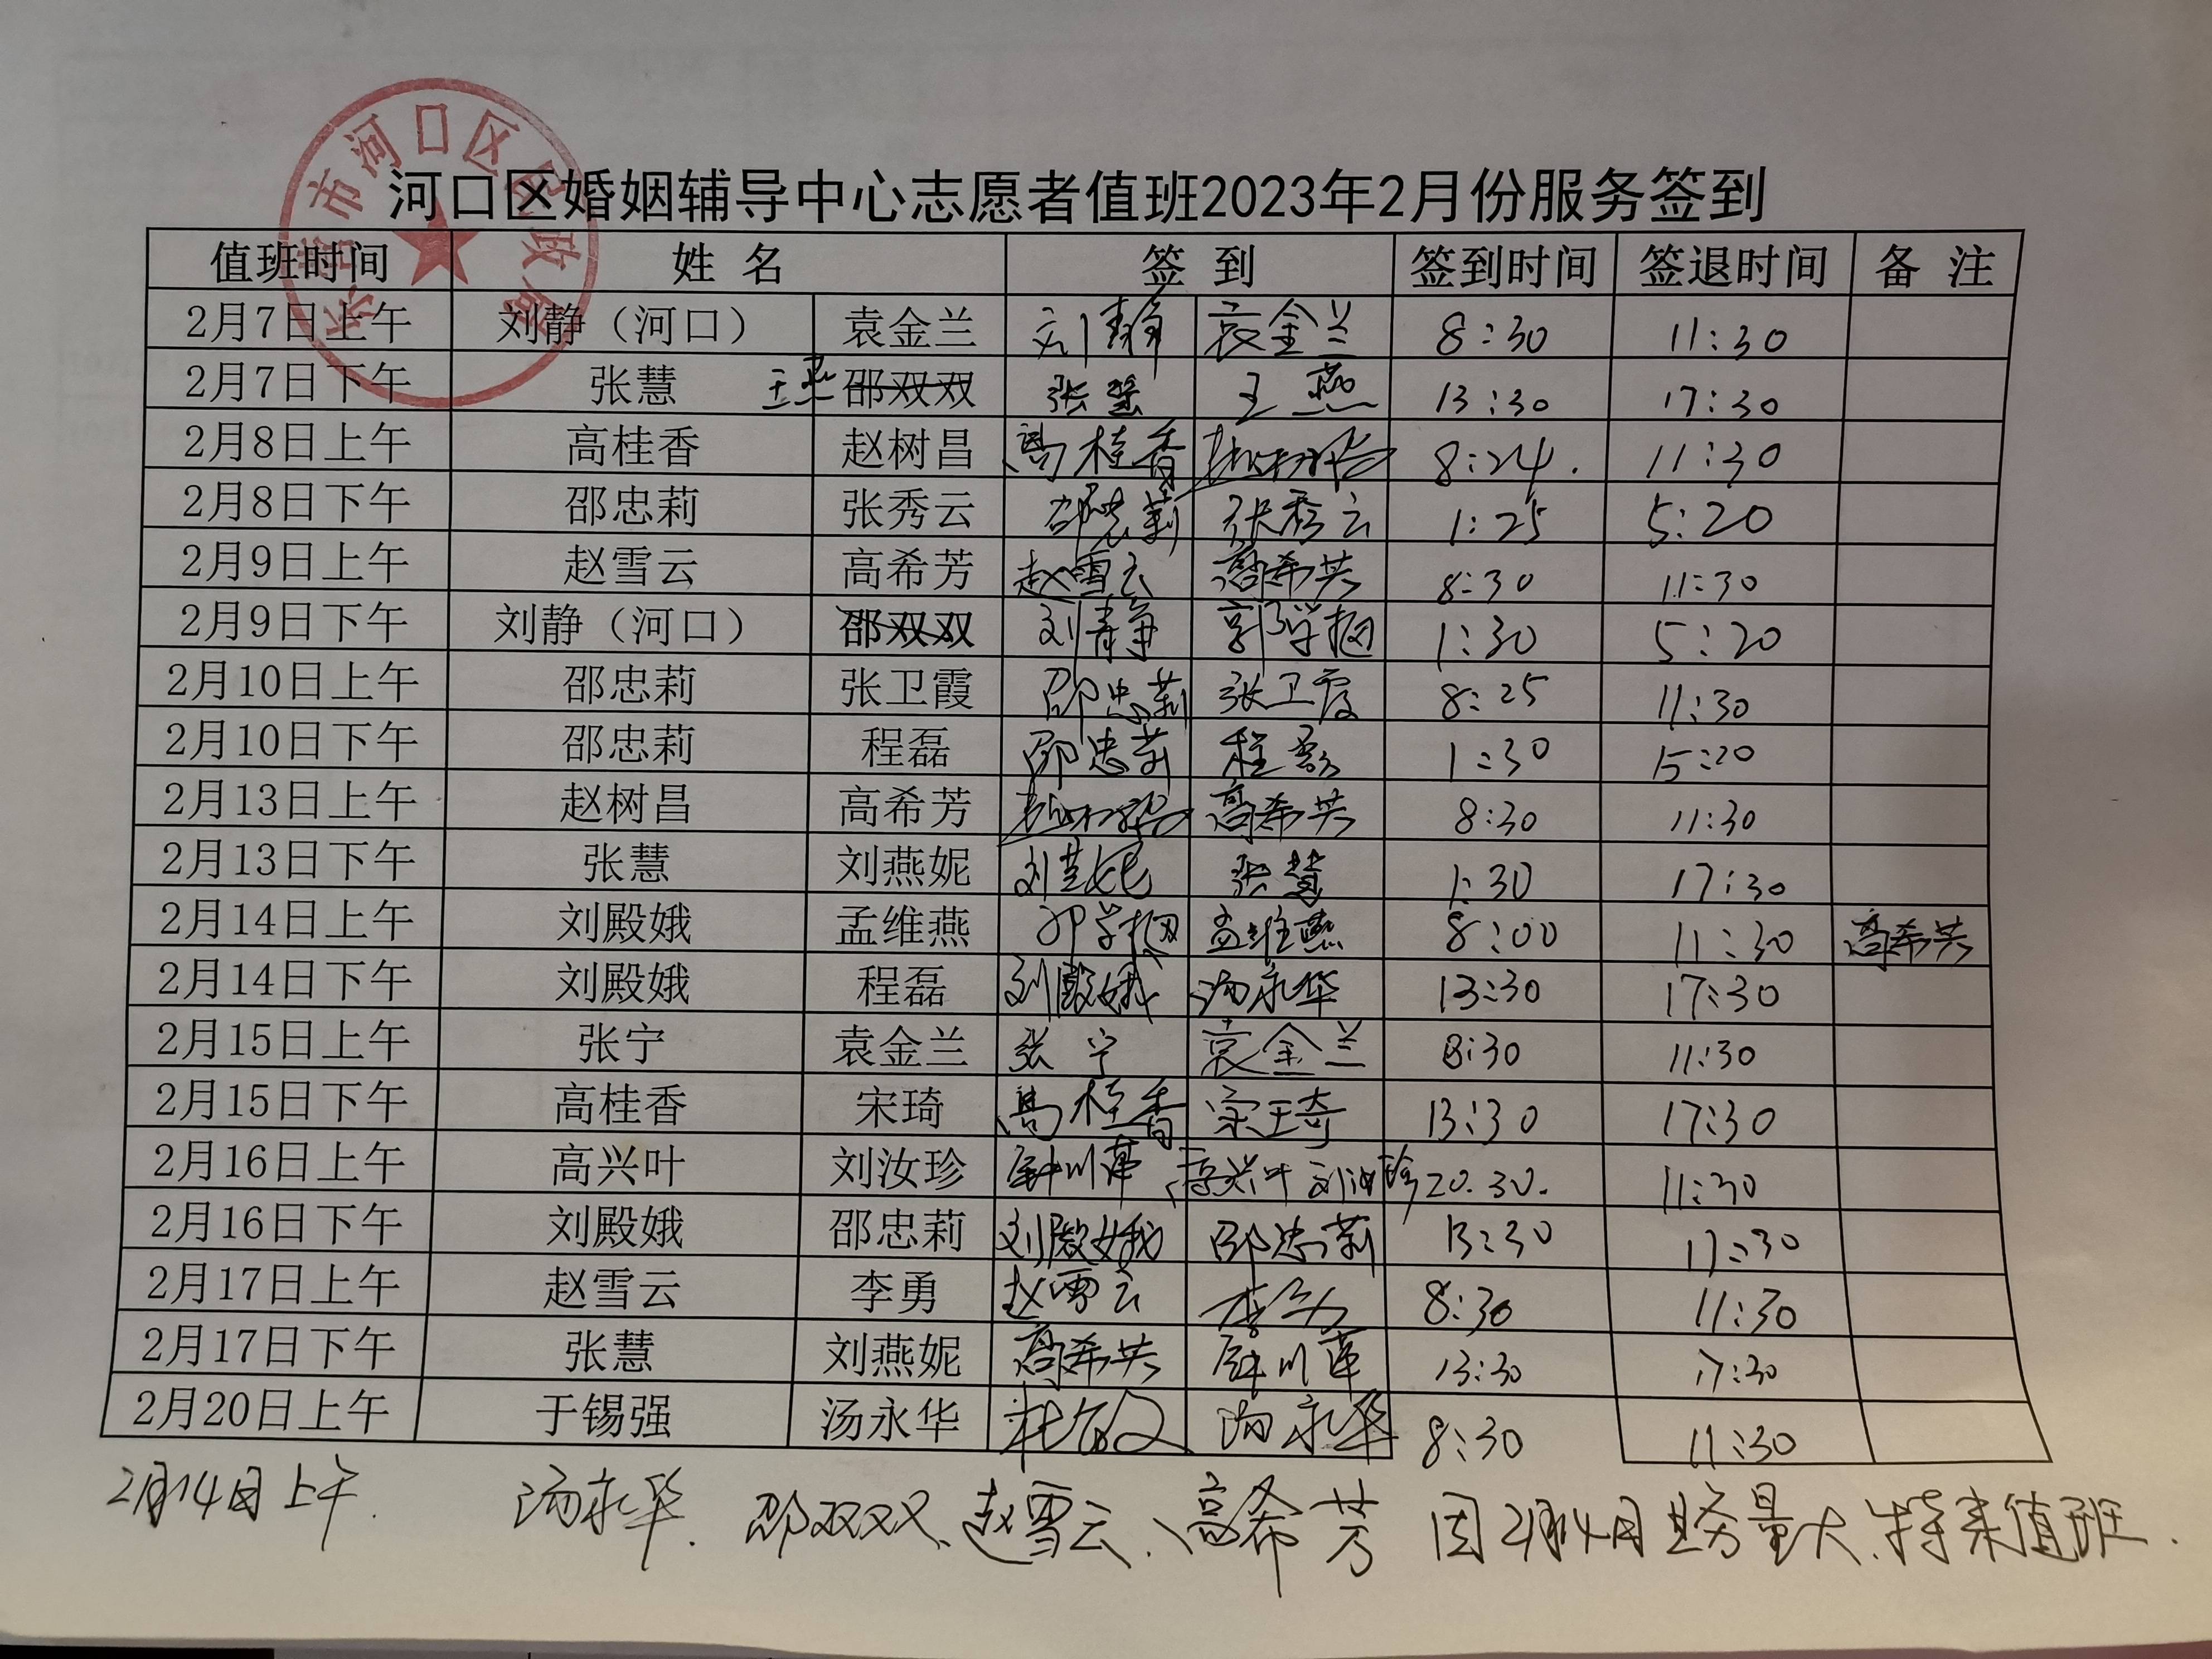 东营市河口区民政局
河口区婚姻辅导中心志愿者值班2023年2月份服务签到
值班时间 姓 名 签 到 签到时间 签退时间 备 注
2月7日上午 刘静（河口） 袁金兰 刘静 袁金兰 8:30 11:30
2月7日下午 张慧 王燕 邵双双 张慧 王燕 13:30 17:30
2月8日上午 高桂香 赵树昌 高桂香 赵树昌 8:24. 11:30
2月8日下午 邵忠莉 张秀云 邵忠莉 张秀云 1:25 5:20
2月9日上午 赵雪云 高希芳 赵雪云 高希芳 8:30 11:30
2月9日下午 刘静（河口） 邵双双 刘静 1:30 5:20
2月10日上午 邵忠莉 张卫霞 邵忠莉 张卫霞 8:25 11:30
2月10日下午 邵忠莉 程磊 邵忠莉 程磊 1:30 15:20
2月13日上午 赵树昌 高希芳 赵树昌 高希芳 8:30 11:30
2月13日下午 张慧 刘燕妮 刘燕妮 张慧 1:30 17:30
2月14日上午 刘殿娥 孟维燕 孟维燕 8:00 11:30 高希芳
2月14日下午 刘殿娥 程磊 刘殿娥 汤永华 13:30 17:30
2月15日上午 张宁 袁金兰 张宁 袁金兰 8:30 11:30
2月15日下午 高桂香 宋琦 高桂香 宋琦 13:30 17:30
2月16日上午 高兴叶 刘汝珍 高兴叶 刘汝珍 20.30. 11:30
2月16日下午 刘殿娥 邵忠莉 刘殿娥 邵忠莉 13:30 17:30
2月17日上午 赵雪云 李勇 赵雪云 李勇 8:30 11:30
2月17日下午 张慧 刘燕妮 高希芳 13:30 17:30
2月20日上午 于锡强 汤永华 汤永华 8:30 11:30
2月14日上午. 汤永华. 邵双双、赵雪云、高希芳 因2月14日业务量大、特来值班.